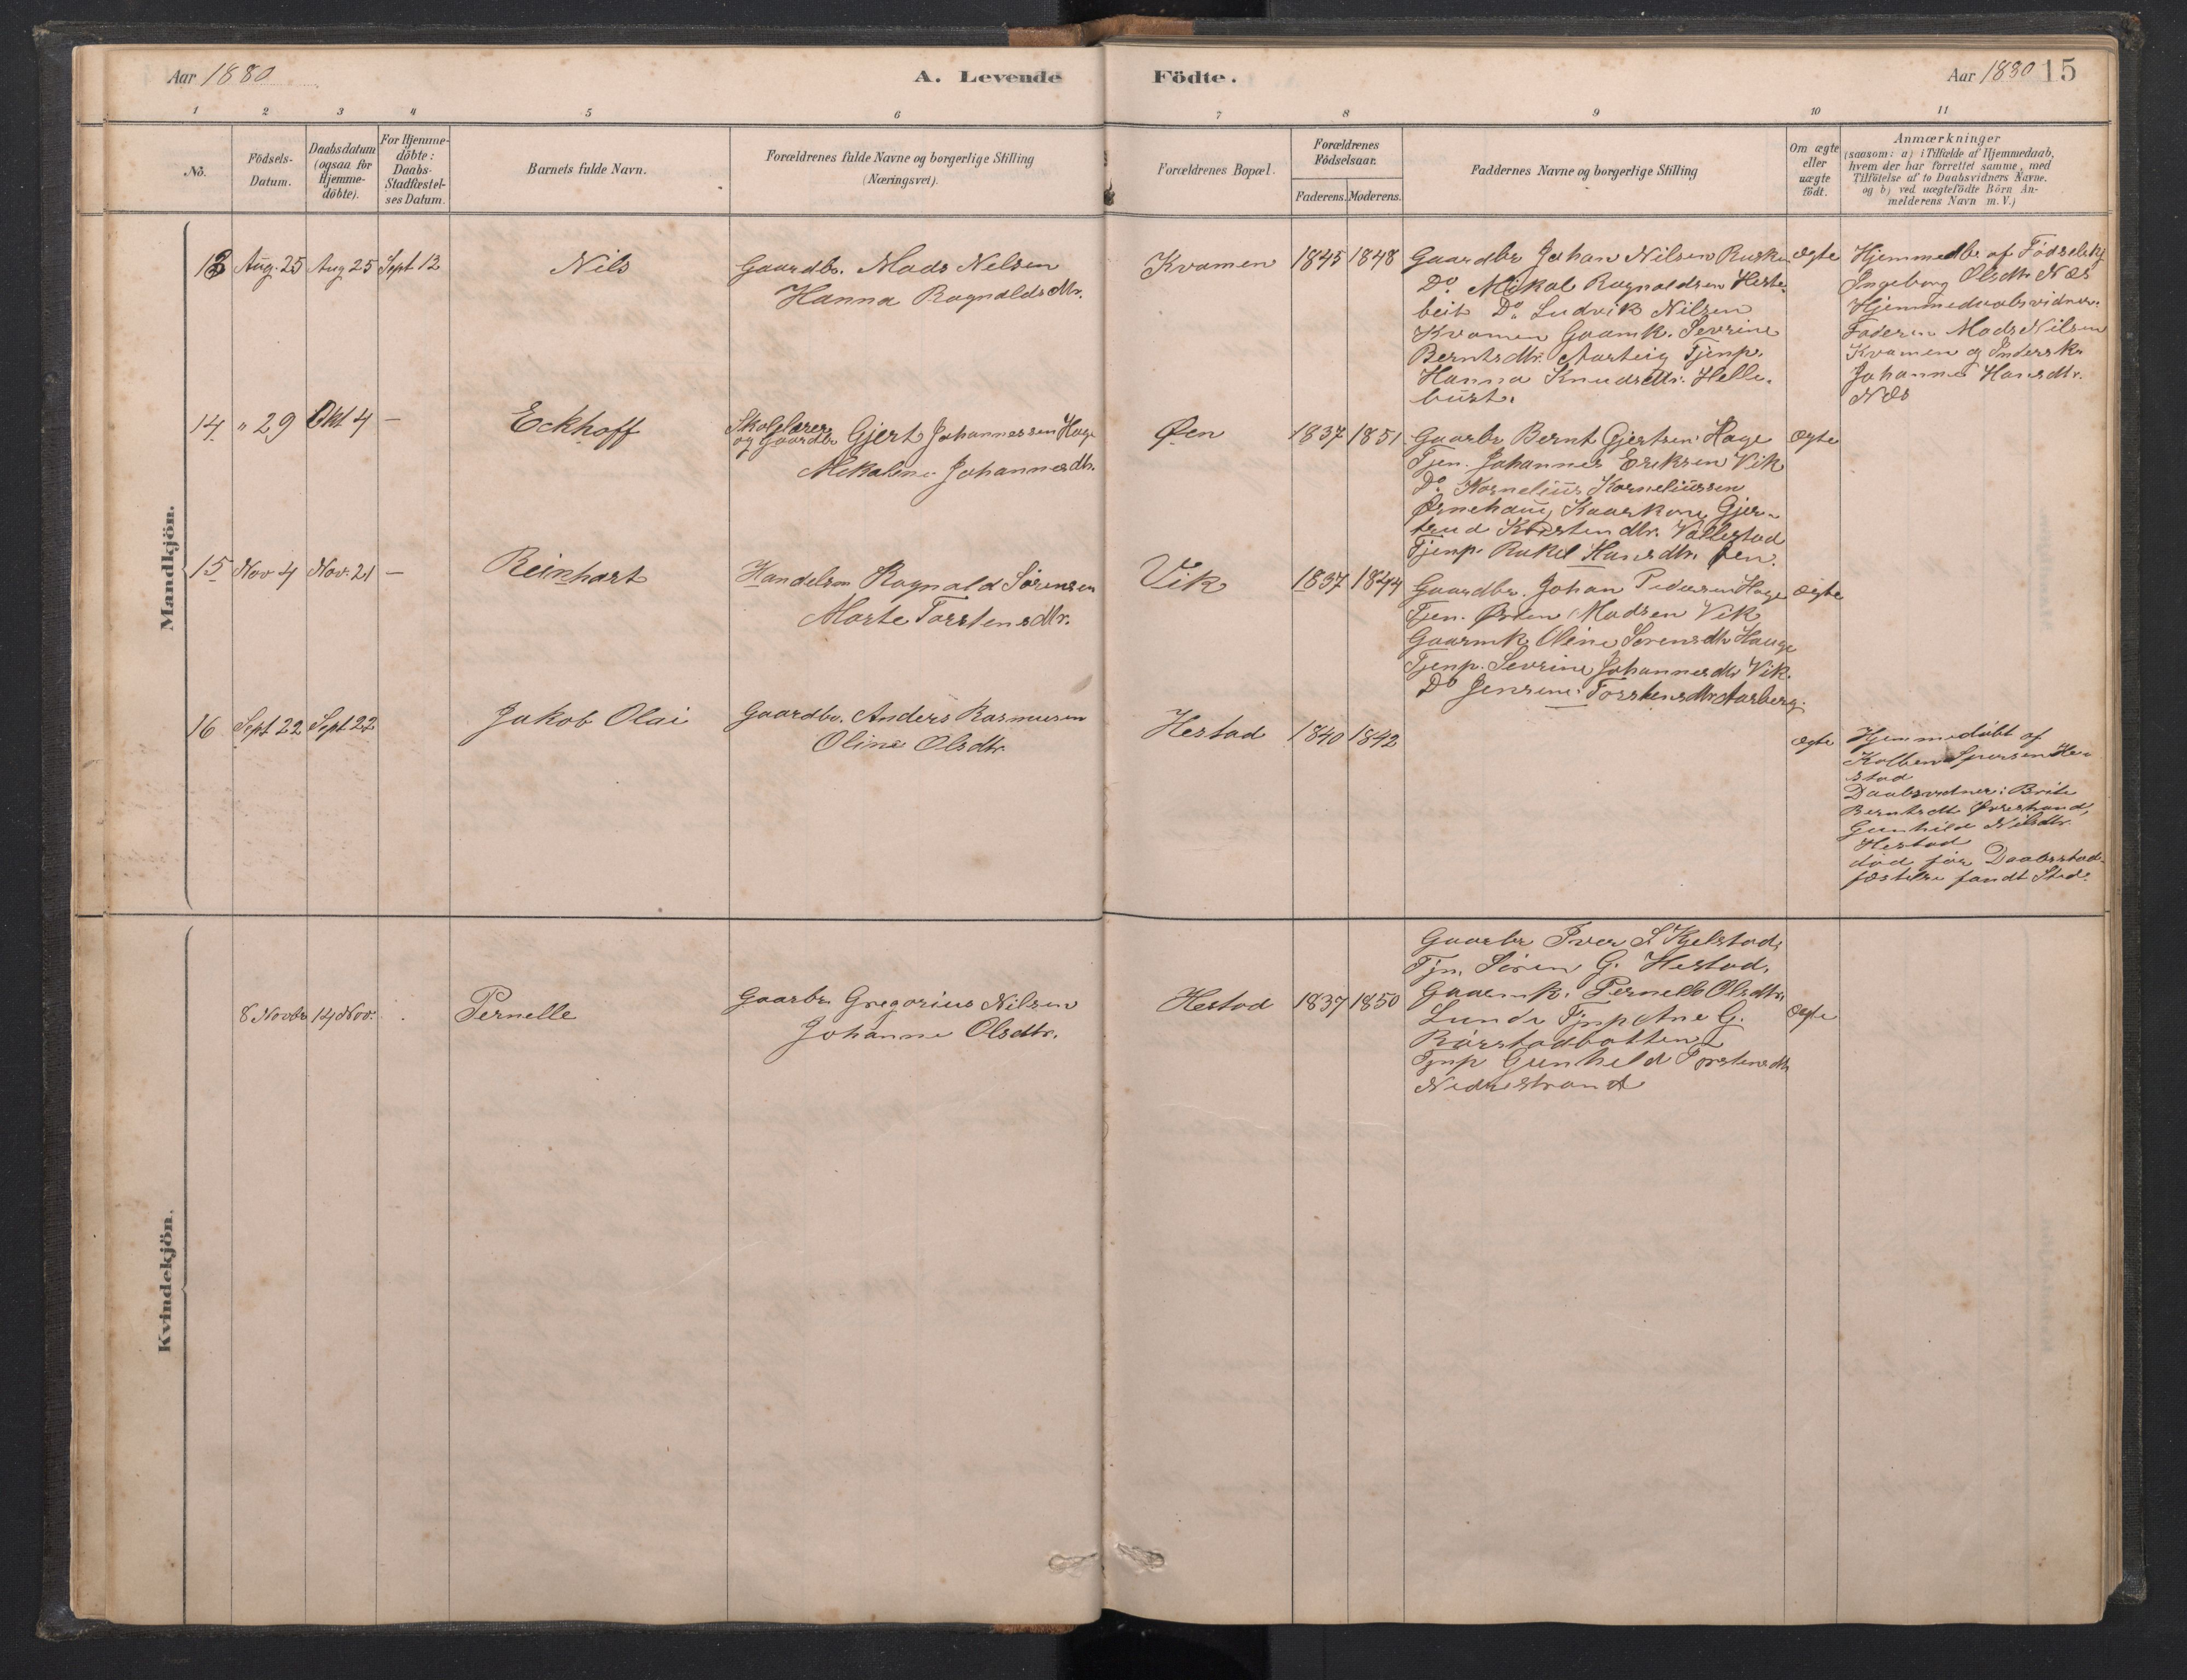 Aar 1880
A. Levende Födte.
Aar 1880 15
1 2 3 4 5 6 7 8 9 10 11
No.
Födsels-Datum.
Daabsdatum (ogsaa for Hjemme-döbte).
For Hjemme-döbte: Daabs-Stadfæstel-ses Datum.
Barnets fulde Navn.
Forældrenes fulde Navne og borgerlige Stilling
(Næringsvei).
Forældrenes Bopæl.
Forældrenes Födselsaar.
Faderens. Moderens.
Faddernes Navne og borgerlige Stilling
Om ægte eller uægte födt.
Anmærkninger
(saasom: a) i Tilfælde af Hjemmedaab,
hvem der har forrettet samme, med
Tilföielse af to Daabsvidners Navne.
og b) ved uægtefödte Börn An-
melderens Navn m. V.)
Mandkjön.
13 Aug. 25 Aug 25 Sept 12 Nils
Gaardbr. Mads Nilsen
Hanna Ragnaldsdtr.
Kvamen 1845 1848
Gaardbr Johan Nilsen
Do Mikal Ragnaldsen Heste-
beit Do Ludvik Nilsen
Kvamen Gaamk. Severine
Berntsdtr. Tjenp.
Hanna Knudsdtr. Helle-
bust.
ægte
Hjemmedbr af Fødselshj
Ingeborg Olsdtr Næs
Hjemmedaabsvidner:
Faderen Mads Nilsen
Kvamen og Indersk.
Johanne Hansdtr.
Næs
14. " 29 Okt 4 — Eckhoff
Skolelærer
og Gaardbr Gjert Johannessen Hage
Mikaline Johannesdtr.
Øen 1837 1851
Gaarbr Bernt Gjertsen Hage
Tjen. Johannes Eriksen Vik
Do Kornelius Korneliussen
Ørnehaug Kaarkone Gjer-
trud Karstendtr. Vallestad
Tjenp. Rakel Hansdtr. Øen.
ægte
15 Nov 4 Nov. 21 — Reinhart
Handelsm Ragnald Sørensen
Marte Torstensdtr.
Vik 1837 1844
Gaardbr. Johan Pedersen Hage
Tjen. Østen Madsen Vik
Gaarmk Oline Sørensdtr Hauge
Tjenp. Severine Johannesdtr Vik.
Do Jensine Torstensdtr Aarberg.
ægte
16 Sept 22 Sept 22 Jakob Olai
Gaardbr. Anders Rasmusen
Oline Olsdtr.
Hestad 1840 1842
ægte
Hjemmedøbt af
Kolben Sjursen He-
stad
Daabsvidner: Brite
Berntsdtr Øvrestrand,
Gunhild Nilsdtr.
Hestad
død før Daabsstad-
fæstelse fandt Sted.
Kvindekjön.
8 Novbr 14 Nov. Pernelle
Gaarbr. Gregorius Nilsen
Johanne Olsdtr.
Hestad 1837 1850
Gaarbr Iver S. Kjelstad,
Tjn. Søren G. Hestad,
Gaarmk. Pernelle Olsdtr.
Lunde Tjnp Ane G.
Rørstadbotten
Tjnp Gunhild Torstensdtr
Nedrestrand
ægte